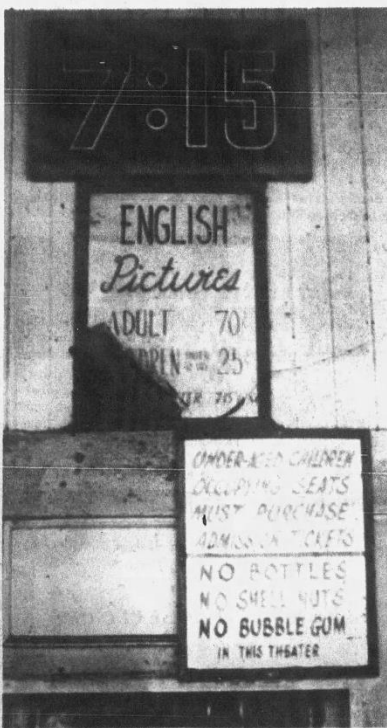 7:15
ENGLISH
Pictures
ADULT 70
25
7:15
UNDER-AGED CHILDREN
OCCUPYING SEATS
MUST PURCHASE
ADMISSION TICKETS
NO BOTTLES
NO SHELL NUTS
NO BUBBLE GUM
IN THIS THEATER